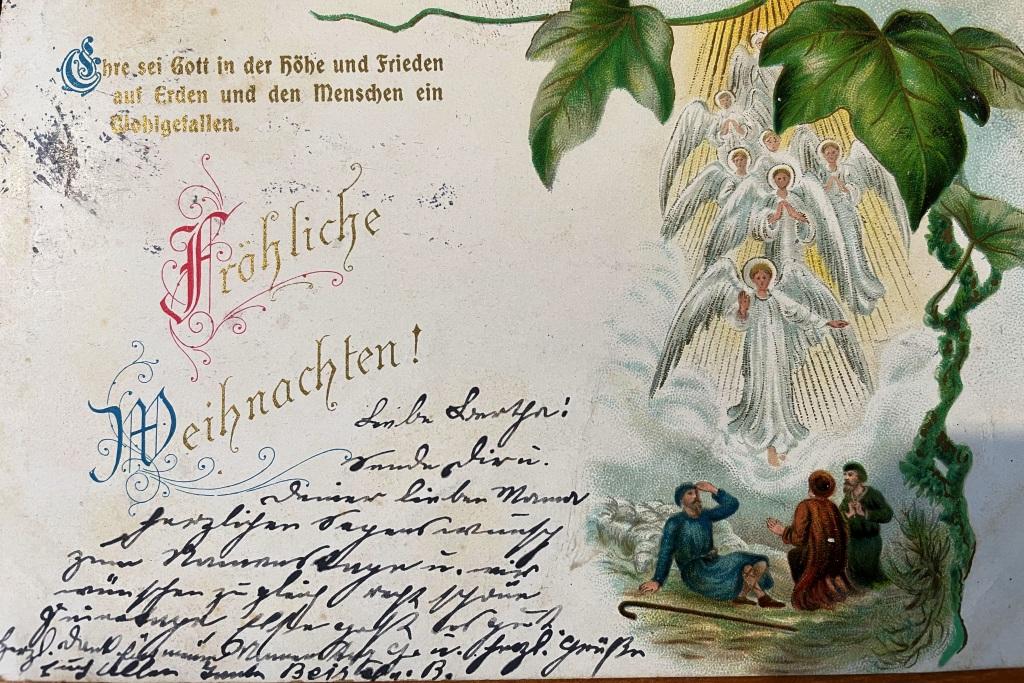 Ehre sei Gott in der Höhe und Frieden
auf Erden und den Menschen ein
Wohlgefallen.
Fröhliche
Weihnachten!
Liebe Bertha!
Sende Dir u.
Deiner lieben Mama
herzlichen Segenswunsch
zum Namenstage u. wir
wünschen zugleich recht schöne
geht es gut
Herzl. Dank für u. herzl. Grüße
Euch Allen B.